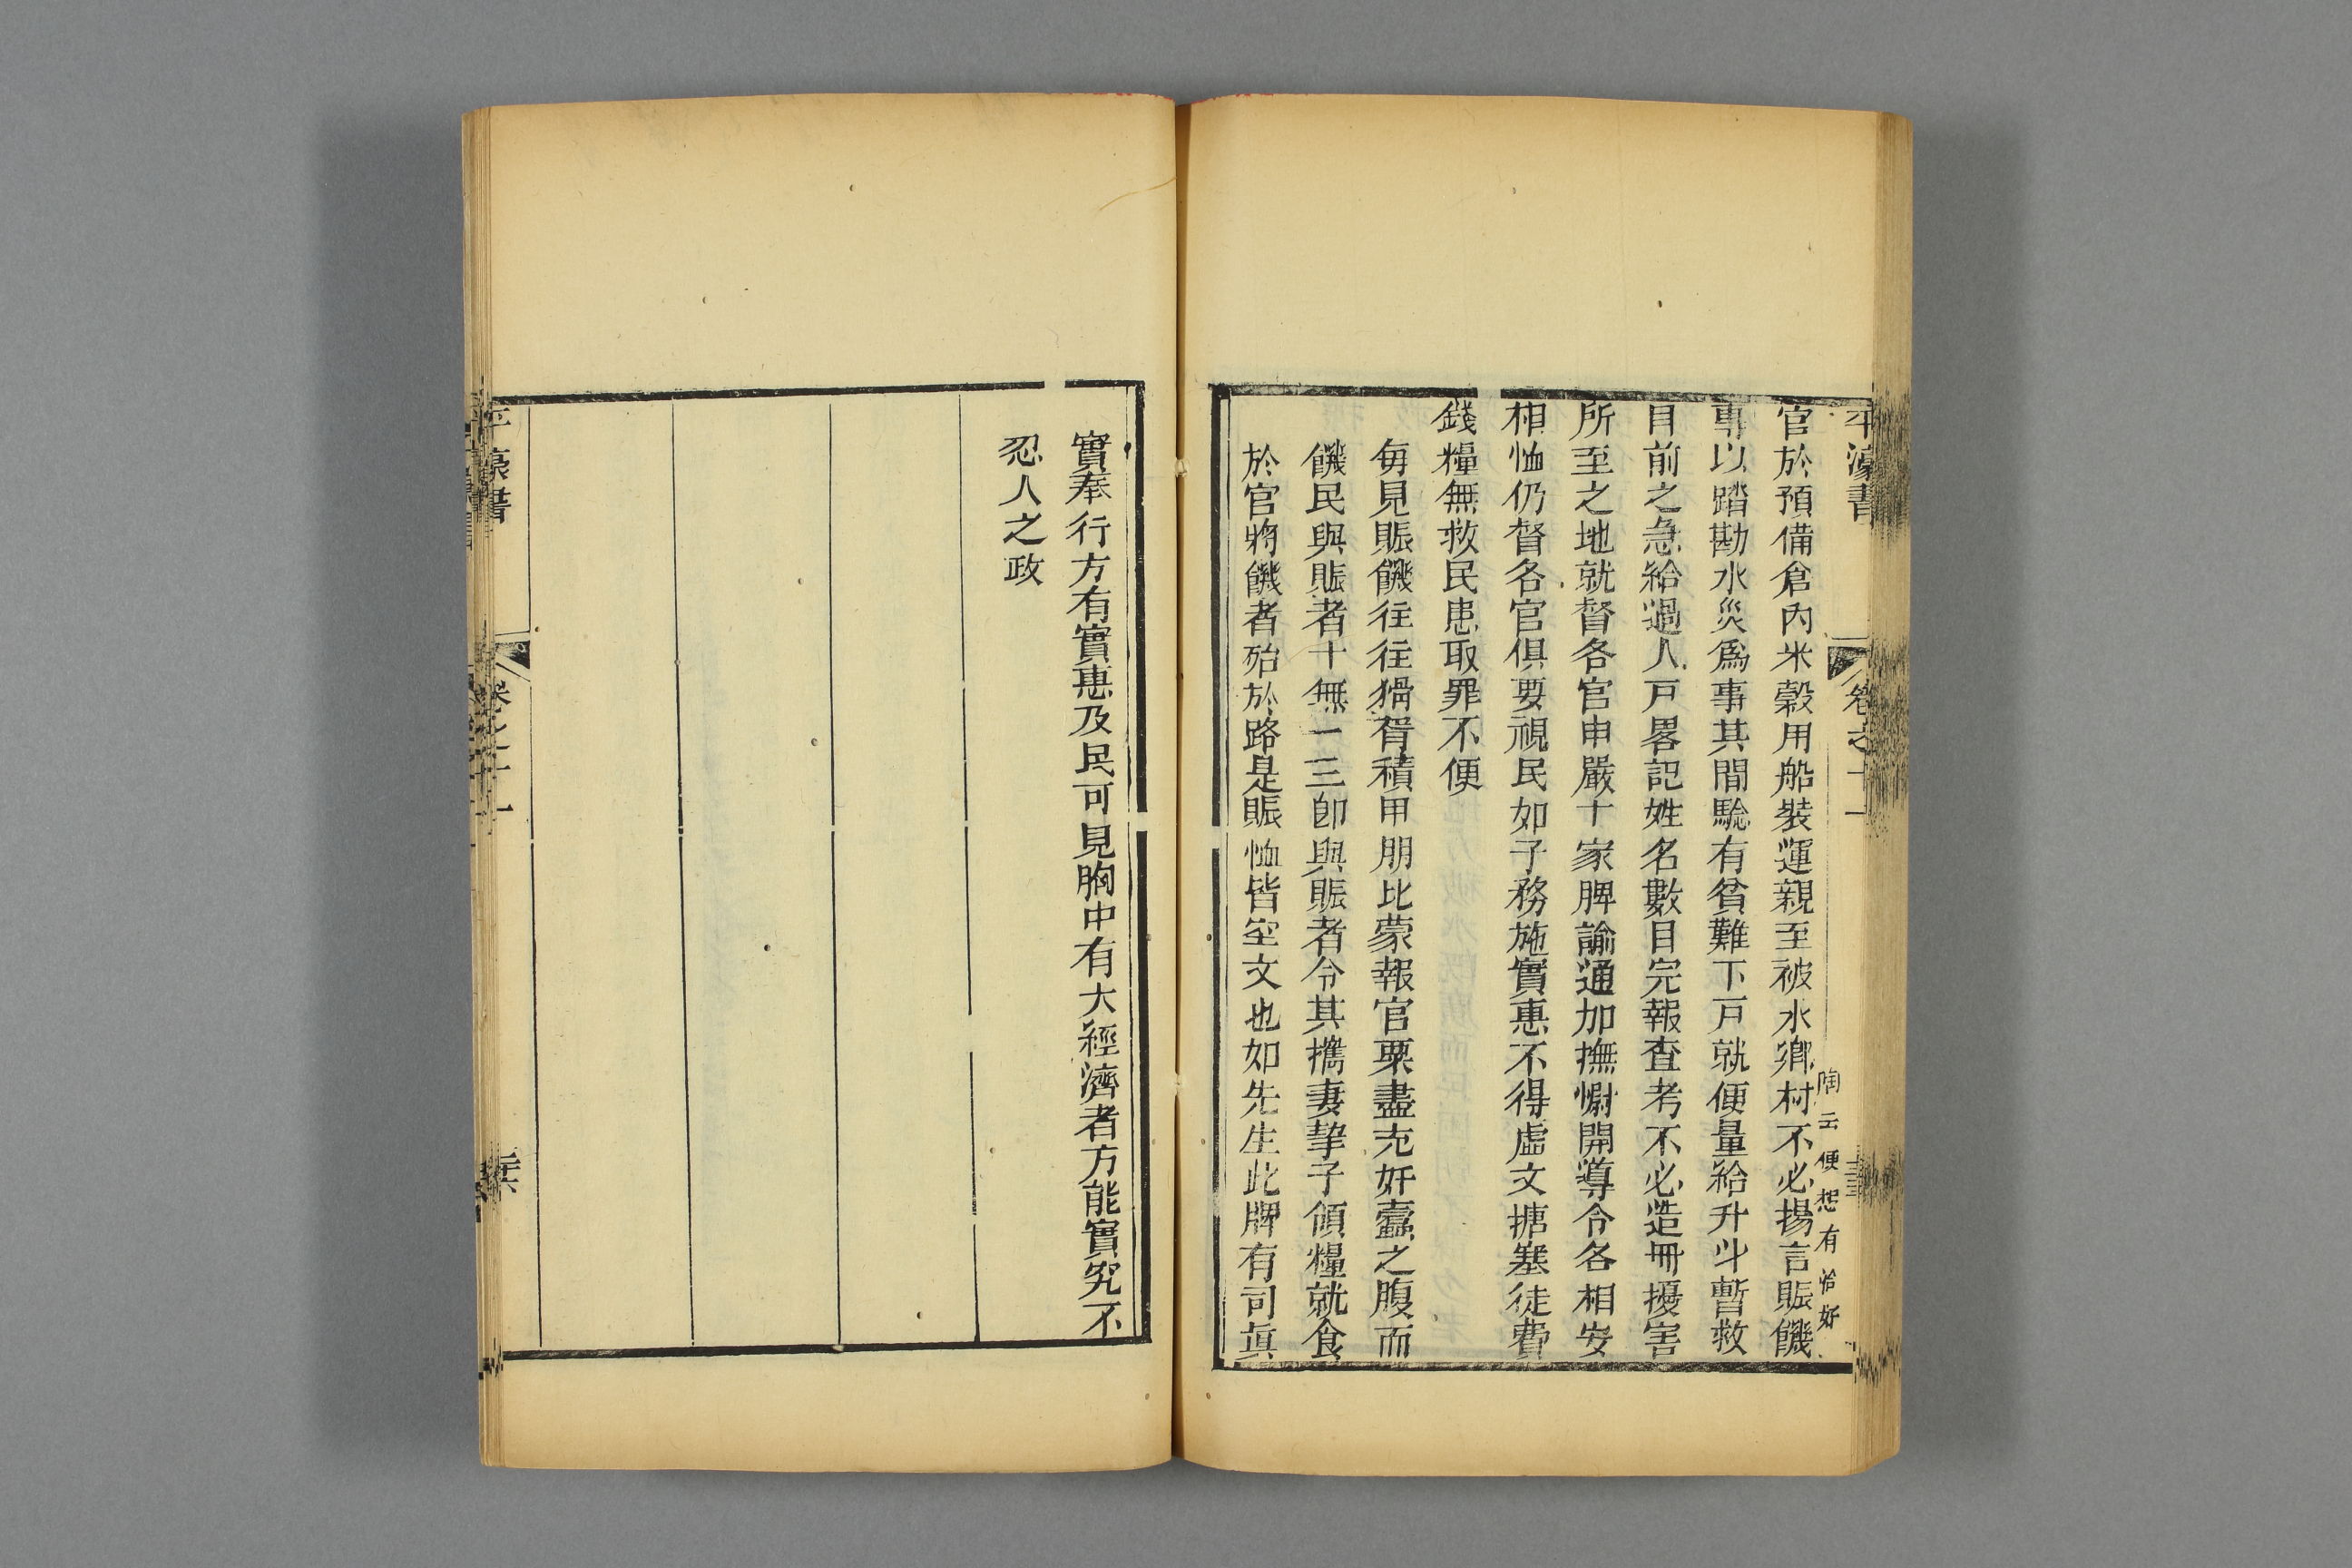 平濠書 卷之十一
陶云便想有恰好
官於預備倉內米穀用船裝運親至被水鄉村不必揚言賑饑
專以踏勘水災爲事其間驗有貧難下戸就便量給升斗暫救
目前之急給過人戸畧記姓名數目完報查考不必造冊擾害
所至之地就督各官申嚴十家牌諭通加撫慰開導令各相安
相恤仍督各官俱要視民如子務施實惠不得虛文搪塞徒費
錢糧無救民患取罪不便
每見賑饑往往猾胥積甲朋比蒙報官粟盡充奸蠹之腹而
饑民與賑者十無一二即與賑者令其攜妻挈子傾糧就食
於官將饑者殆於路是賑恤皆空文也如先生此牌有司眞
實奉行方有實惠及民可見胸中有大經濟者方能實究不
忍人之政
平濠書 卷之十一